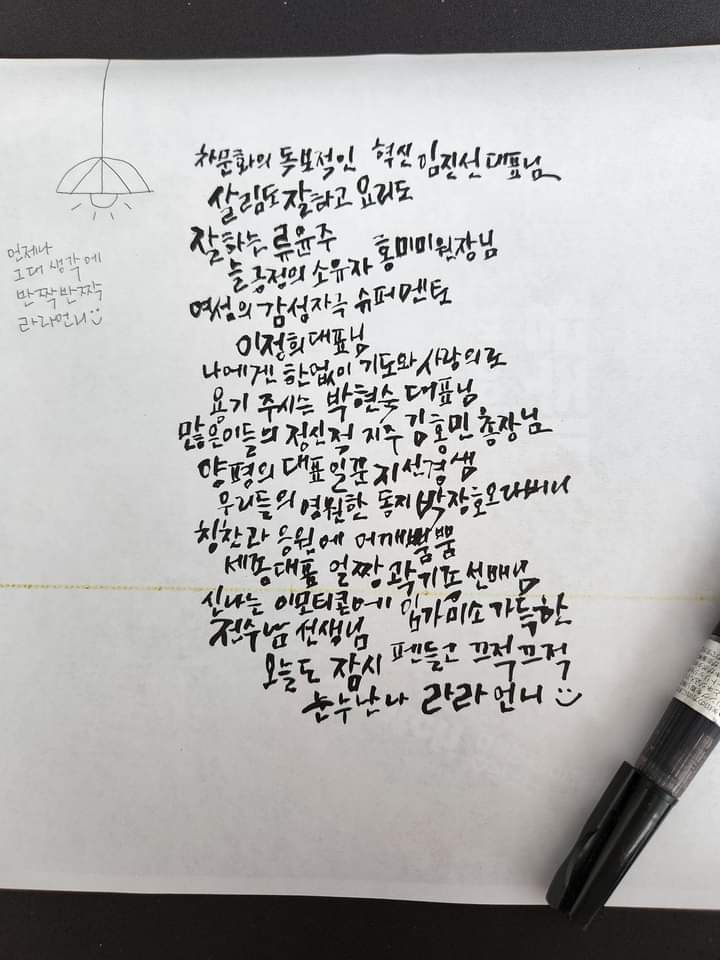 언제나
그대 생각에
반짝반짝
라라언니
차문화의 독보적인 혁신 임진선 대표님
살림도 잘하고 요리도
잘하는 류윤주
늘 긍정의 소유자 홍미미원장님
여성의 감성자극 슈퍼멘토
이정희대표님
나에겐 한없이 기도와 사랑의로
용기 주시는 박현숙 대표님
많은이들의 정신적 지주 김홍민 총장님
양평의 대표일꾼 지선경샘
우리들의 영원한 동지 박장호오라버니
칭찬과 응원에 어깨뿜뿜
세종대표 얼짱 곽기조 선배님
신나는 이모티콘에 입가미소 가득한
전수남 선생님
오늘도 잠시 펜들고 끄적끄적
순수난나 라라언니